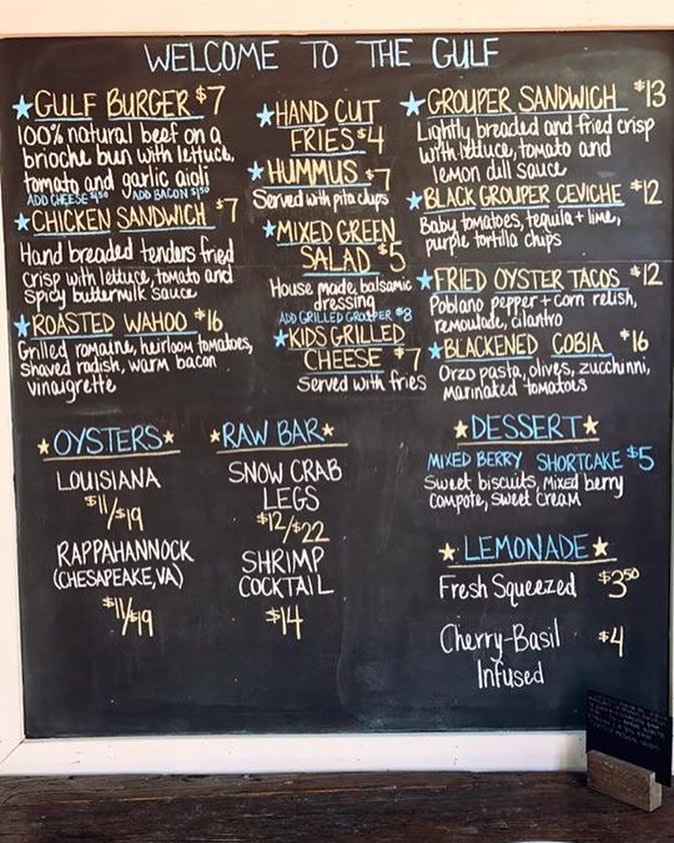 WELCOME TO THE GULF
★GULF BURGER $7
100% natural beef on a
brioche bun with lettuce,
tomato and garlic aioli
ADD CHEESE $1.50 ADD BACON $1.50
★CHICKEN SANDWICH $7
Hand breaded tenders fried
crisp with lettuce, tomato and
spicy buttermilk sauce
★ROASTED WAHOO $16
Grilled romaine, heirloom tomatoes,
shaved radish, warm bacon
vinaigrette
★HAND CUT
FRIES $4
★HUMMUS $7
Served with pita chips
★MIXED GREEN
SALAD $5
House made balsamic
dressing
ADD GRILLED GROUPER $8
★KIDS GRILLED
CHEESE $7
Served with fries
★GROUPER SANDWICH $13
Lightly breaded and fried crisp
with lettuce, tomato and
lemon dill sauce
★BLACK GROUPER CEVICHE $12
Baby tomatoes, tequila + lime,
purple tortilla chips
★FRIED OYSTER TACOS $12
Poblano pepper + corn relish,
remoulade, cilantro
★BLACKENED COBIA $16
Orzo pasta, olives, zucchinni,
marinated tomatoes
★OYSTERS★
LOUISIANA
$11/$19
RAPPAHANNOCK
(CHESAPEAKE, VA)
$11/$19
★RAW BAR★
SNOW CRAB
LEGS
$12/$22
SHRIMP
COCKTAIL
$14
★DESSERT★
MIXED BERRY SHORTCAKE $5
Sweet biscuits, mixed berry
compote, sweet cream
★LEMONADE★
Fresh Squeezed $3.50
Cherry-Basil $4
Infused